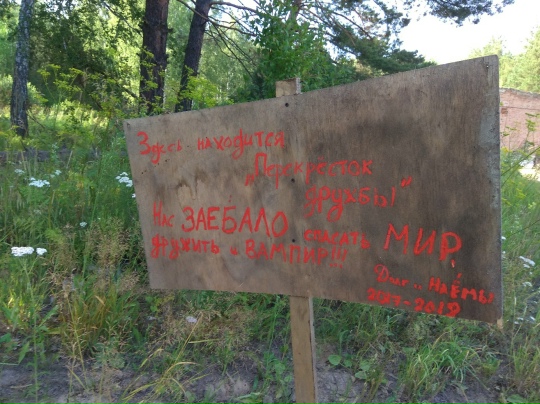 Здесь находится
„Перекресток
дружбы"
Нас ЗАЕБАЛО спасать МИР,
дружить и ВАМПИР!!!
Долг и НаЁмы
2007-2019